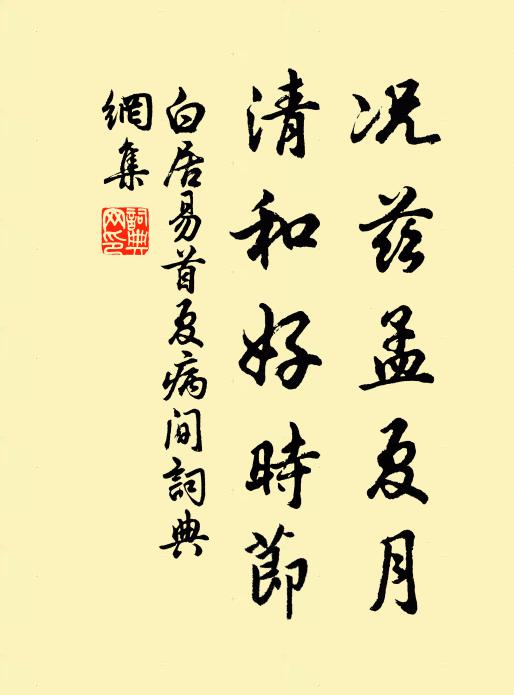 况茲孟夏月
清和好時節
白居易首夏病間詞典
網集
詞典網印